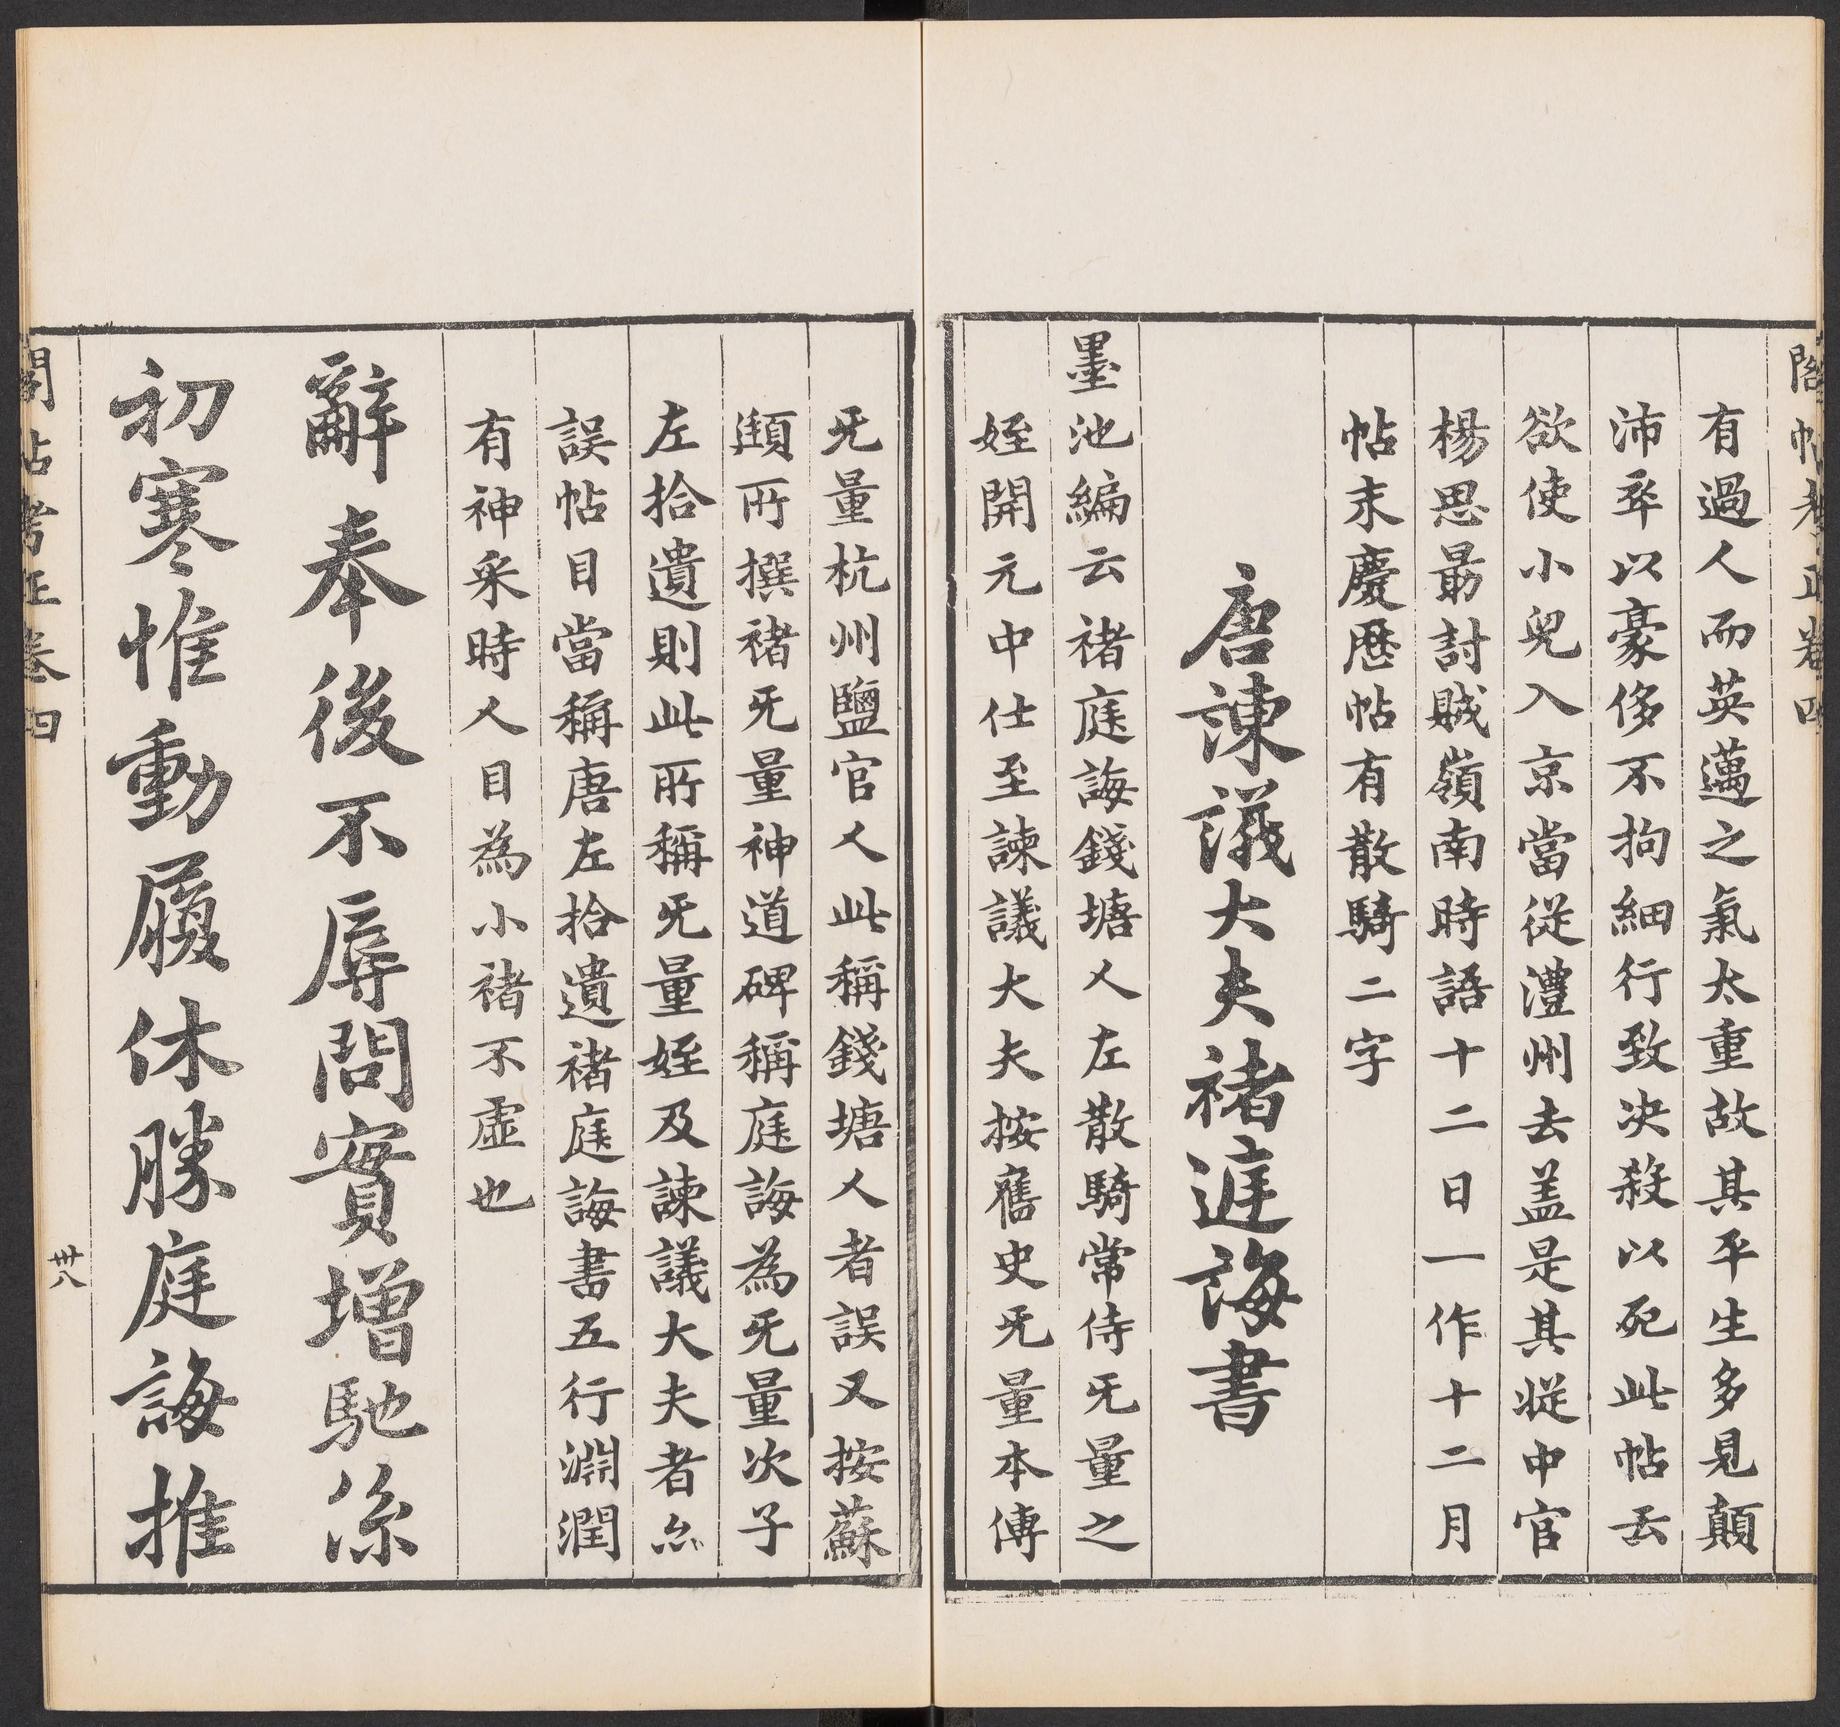 閣帖考正卷四
有過人而英邁之氣太重故其平生多見顛
沛卒以豪侈不拘細行致決殺以死此帖云
欲使小兒入京當從澧州去蓋是其從中官
楊思勗討賊嶺南時語十二日一作十二月
帖末慶曆帖有散騎二字
唐諫議大夫褚庭誨書
墨池編云褚庭誨錢塘人左散騎常侍旡量之
姪開元中仕至諫議大夫按舊史旡量本傳
旡量杭州鹽官人此稱錢塘人者誤又按蘇
頲所撰褚旡量神道碑稱庭誨為旡量次子
左拾遺則此所稱旡量姪及諫議大夫者亦
誤帖目當稱唐左拾遺褚庭誨書五行淵潤
有神采時人目為小褚不虛也
辭奉後不辱問實增馳係
初寒惟動履休勝庭誨推
閣帖考正卷四
卅八